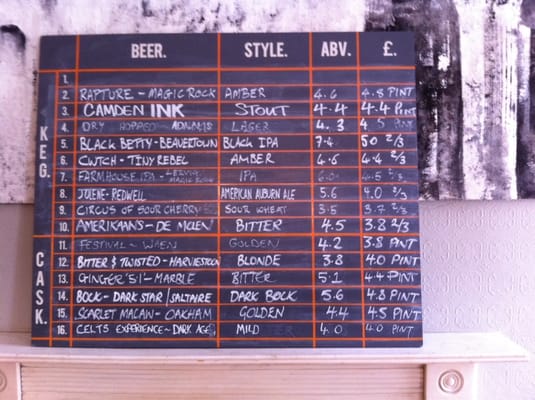 BEER. STYLE. ABV. £.
KEG.
1.
2. RAPTURE - MAGIC ROCK AMBER 4.6 4.8 PINT
3. CAMDEN INK STOUT 4.4 4.4 PINT
4. DRY HOPPED - ADNAMS LAGER 4.3 4.5 PINT
5. BLACK BETTY - BEAVERTOWN BLACK IPA 7.4 50 2/3
6. CWTCH - TINY REBEL AMBER 4.6 4.4 2/3
7. FARMHOUSE IPA - MAGIC ROCK IPA 6.0 4.5 2/3
8. JOLENE - REDWELL AMERICAN AUBURN ALE 5.6 4.0 2/3
9. CIRCUS OF SOUR CHERRY SOUR WHEAT 3.5 3.7 2/3
10. AMERIKAANS - DE MOLEN BITTER 4.5 3.8 2/3
CASK.
11. FESTIVAL - WAEN GOLDEN 4.2 3.8 PINT
12. BITTER & TWISTED - HARVIESTOUN BLONDE 3.8 4.0 PINT
13. GINGER '51' - MARBLE BITTER 5.1 4.4 PINT
14. BOCK - DARK STAR | SALTAIRE DARK BOCK 5.6 4.8 PINT
15. SCARLET MACAW - OAKHAM GOLDEN 4.4 4.5 PINT
16. CELTS EXPERIENCE - DARK AGE MILD 4.0 4.0 PINT